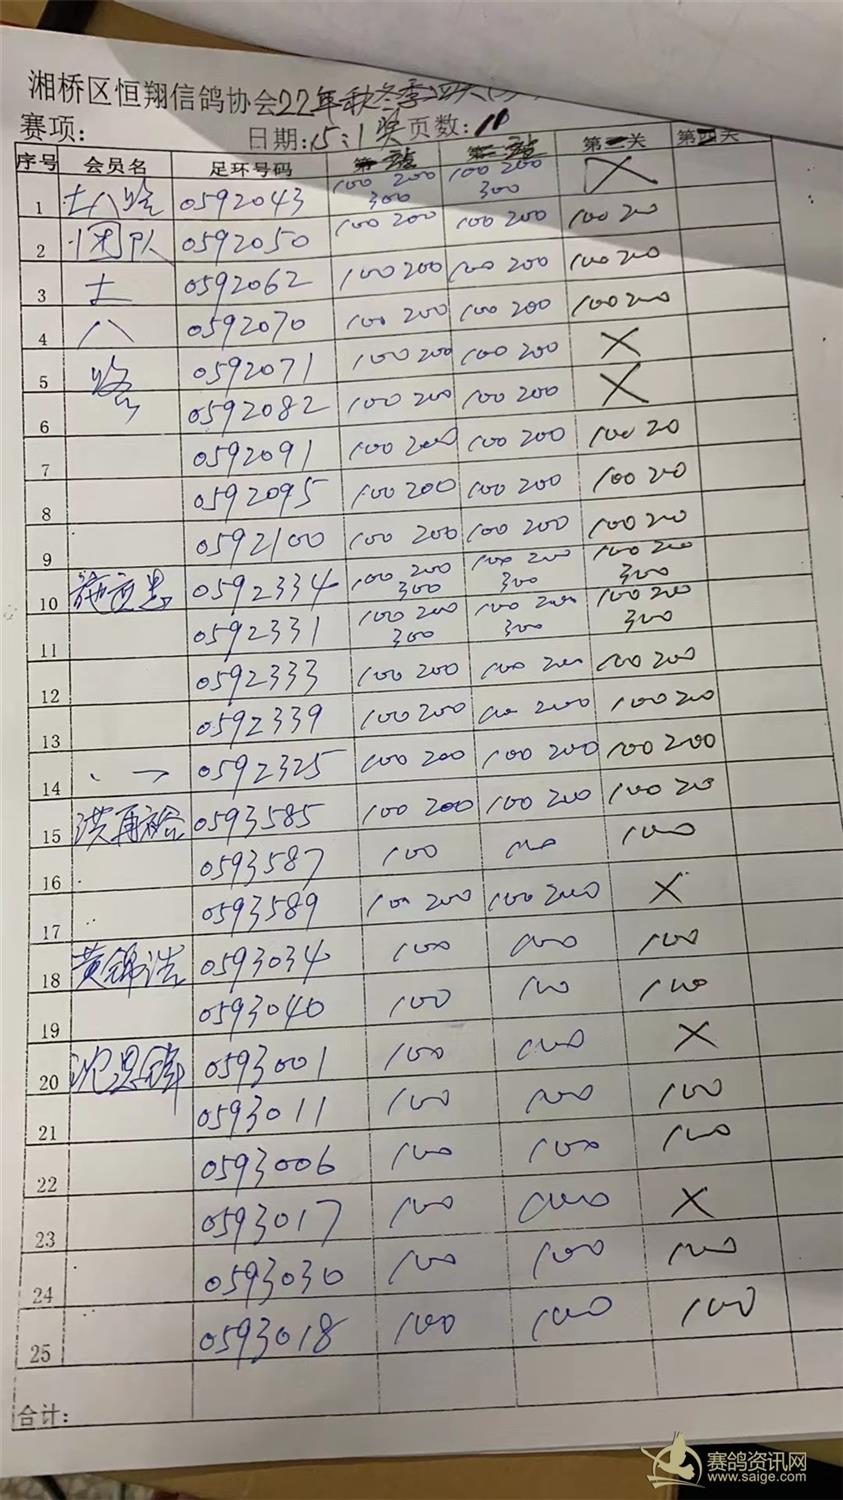 湘桥区恒翔信鸽协会22年秋冬季四关
赛项: 日期:15:1奖 页数:10
序号 会员名 足环号码 第一站 第二站 第三关 第四关
1 土八路 0592043 100 200 300 100 200 300 X
2 团队 0592050 100 200 100 200 100 200
3 土 0592062 100 200 100 200 100 200
4 八 0592070 100 200 100 200 100 200
5 路 0592071 100 200 100 200 X
6 0592082 100 200 100 200 X
7 0592091 100 200 100 200 100 200
8 0592095 100 200 100 200 100 200
9 0592100 100 200 100 200 100 200
10 0592334 100 200 300 100 200 300 100 200 300
11 0592331 100 200 300 100 200 300 100 200 300
12 0592333 100 200 100 200 100 200
13 0592339 100 200 100 200 100 200
14 0592325 100 200 100 200 100 200
15 洪再裕 0593585 100 200 100 200 100 200
16 0593587 100 100 100
17 0593589 100 200 100 200 X
18 黄锦浩 0593034 100 100 100
19 0593040 100 100 100
20 0593001 100 100 X
21 0593011 100 100 100
22 0593006 100 100 100
23 0593017 100 100 X
24 0593030 100 100 100
25 0593018 100 100 100
合计:
赛鸽资讯网
www.saige.com